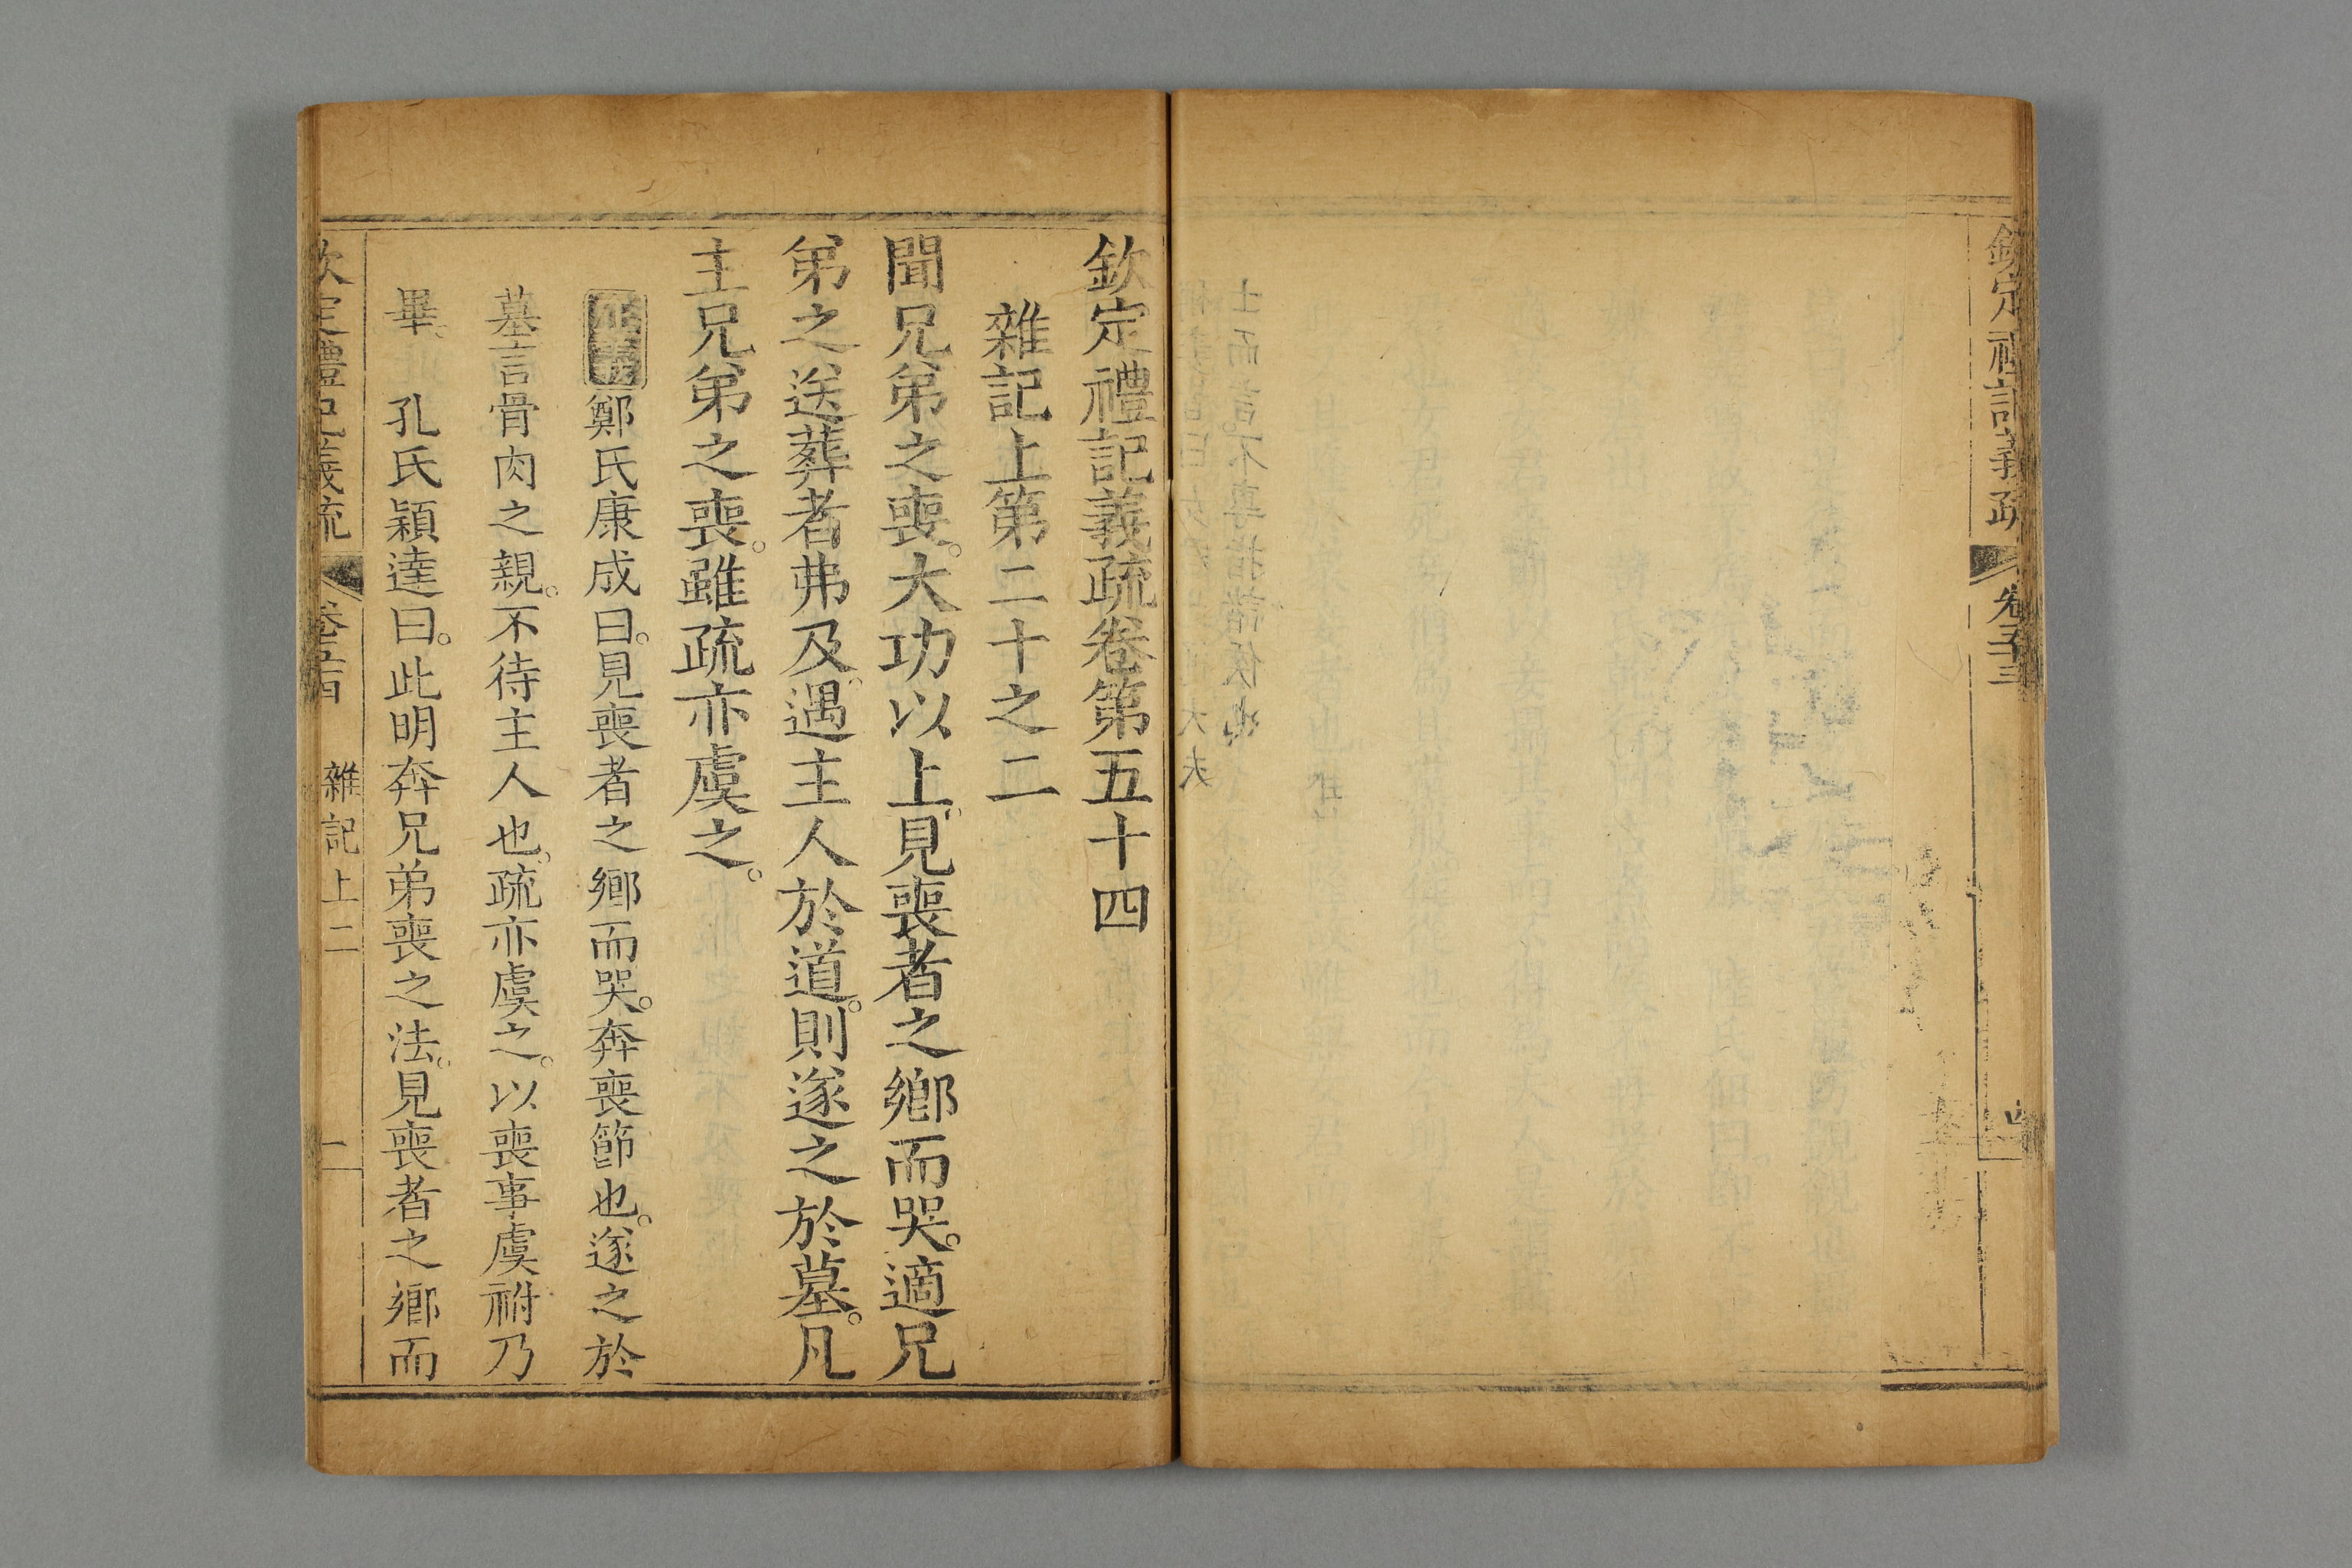 欽定禮記義疏 卷五十三
欽定禮記義疏卷第五十四
雜記上第二十之二
聞兄弟之喪。大功以上。見喪者之鄉而哭。適兄
弟之送葬者弗及。遇主人於道。則遂之於墓。凡
主兄弟之喪。雖疏亦虞之。
正義鄭氏康成曰。見喪者之鄉而哭。奔喪節也。遂之於
墓。言骨肉之親。不待主人也。疏亦虞之。以喪事虞祔乃
畢。 孔氏穎達曰。此明奔兄弟喪之法。見喪者之鄉而
欽定禮記義疏 雜記上二 一